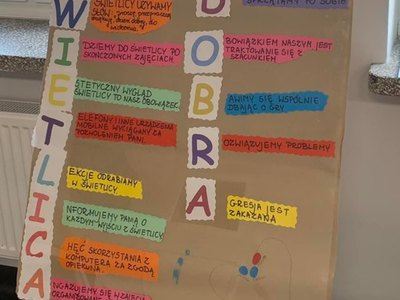 W
ŚWIETLICY UŻYWAMY
SŁÓW: proszę, przepraszam,
dziękuję, dzień dobry, do
widzenia.
I
DZIEMY DO ŚWIETLICY PO
SKOŃCZONYCH ZAJĘCIACH
E
STETYCZNY WYGLĄD
ŚWIETLICY TO NASZ OBOWIĄZEK.
T
ELEFONY I INNE URZĄDZENIA
MOBILNE WYCIĄGAMY ZA
POZWOLENIEM PANI.
L
EKCJE ODRABIAMY
W ŚWIETLICY.
I
NFORMUJEMY PANIĄ O
KAŻDYM WYJŚCIU Z ŚWIETLICY
C
HĘĆ SKORZYSTANIA Z
KOMPUTERA ZA ZGODĄ
OPIEKUNA.
A
NGAŻUJEMY SIĘ W ZAJĘCIA
D
SPRZĄTAMY PO SOBIE
O
BOWIĄZKIEM NASZYM JEST
TRAKTOWANIE SIĘ Z
SZACUNKIEM
B
AWIMY SIĘ WSPÓLNIE
DBAJĄC O GRY.
R
OZWIĄZUJEMY PROBLEMY
A
GRESJA JEST
ZAKAZANA